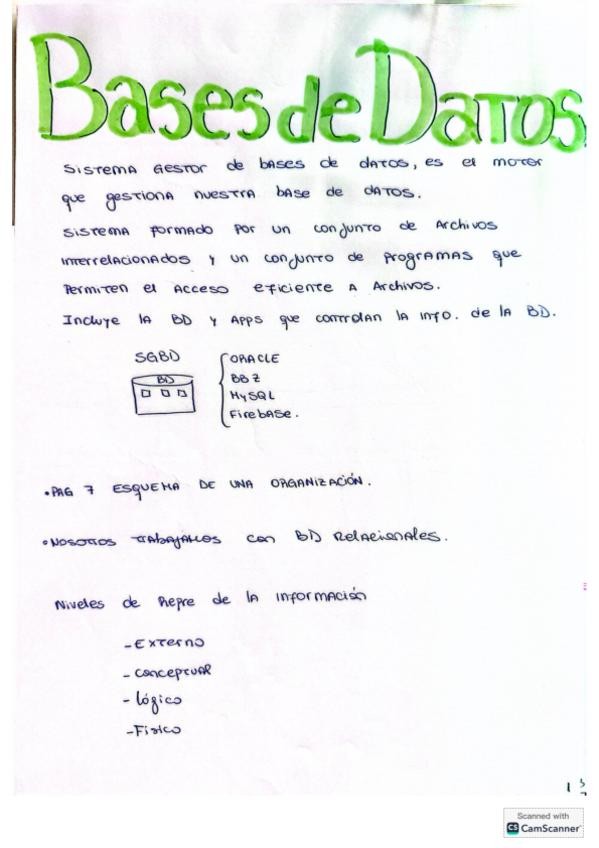 Bases de Datos
Sistema Gestor de bases de datos, es el motor
que gestiona nuestra base de datos.
Sistema formado por un conjunto de Archivos
interrelacionados y un conjunto de programas que
Permiten el Acceso eficiente a Archivos.
Incluye la BD y Apps que controlan la info. de la BD.
SGBD
BD
ORACLE
BBZ
MySQL
Firebase.
•PAG 7 ESQUEMA DE UNA ORGANIZACIÓN.
•Nosotros trabajamos con BD Relacionales.
Niveles de Repre de la información
-Externo
-Conceptual
-Lógico
-Físico
1
Scanned with
CS CamScanner